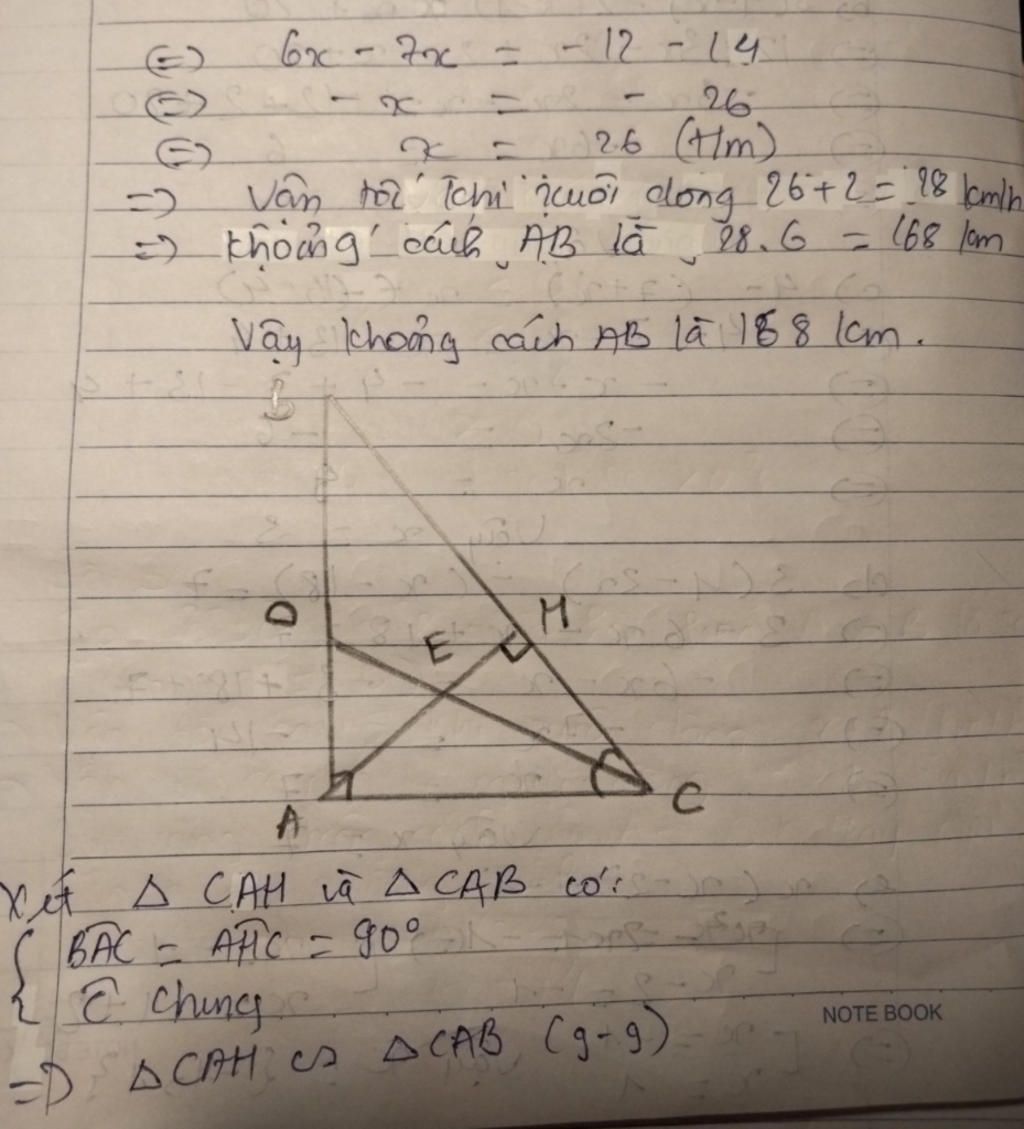 ⇔ 6x - 7x = -12 - 14
⇔ - x = - 26
⇔ x = 26 (t/m)
=> Vận tốc khi xuôi dòng 26 + 2 = 28 km/h
=> Khoảng cách AB là 28.6 = 168 km
Vậy khoảng cách AB là 168 km.
B
D
E
H
A
C
Xét Δ CAH và Δ CAB có:
{ BAC = AHC = 90°
Ĉ chung
=> Δ CAH ∽ Δ CAB (g-g)
NOTE BOOK